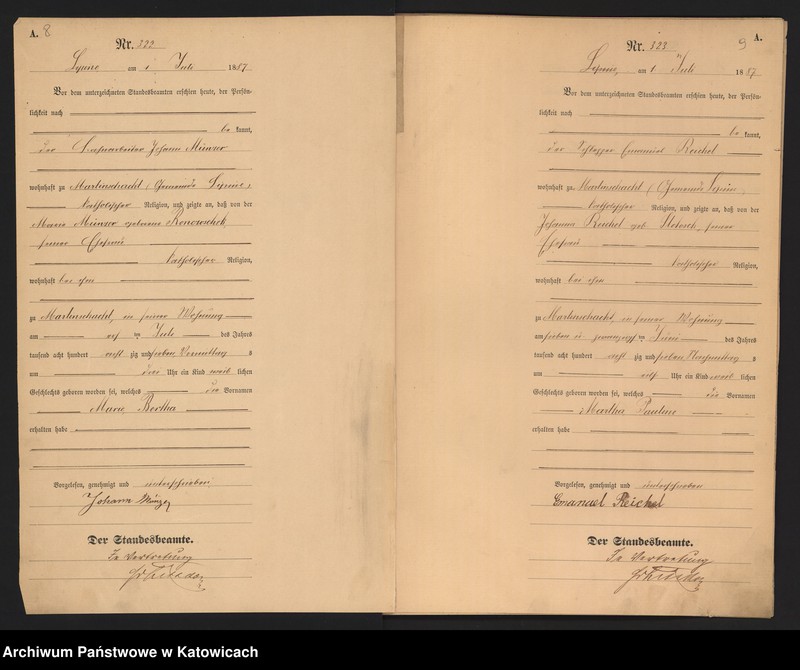 A. 8
Nr. 322
Lipine am 1 Juli 1887
Vor dem unterzeichneten Standesbeamten erschien heute, der Persön-
lichkeit nach
be kannt,
der Johann Münzer
wohnhaft zu Martinschacht, Gemeinde Lipine,
katholischer Religion, und zeigte an, daß von der
Marie Münzer geborene
seiner Ehefrau
katholischer Religion,
wohnhaft bei ihm
zu Martinschacht, in seiner Wohnung
am Juli des Jahres
tausend acht hundert acht zig und sieben Vormittag s
um drei Uhr ein Kind weib lichen
Geschlechts geboren worden sei, welches die Vornamen
Marie Bertha
erhalten habe
Vorgelesen, genehmigt und unterschrieben
Johann Münzer
Der Standesbeamte.
In Vertretung
9 A.
Nr. 323
Lipine, am 1 Juli 1887
Vor dem unterzeichneten Standesbeamten erschien heute, der Persön-
lichkeit nach
be kannt,
der Schlepper Emanuel Reichel
wohnhaft zu Martinschacht, Gemeinde Lipine
katholischer Religion, und zeigte an, daß von der
Johanna Reichel geb. seiner
Ehefrau
katholischer Religion,
wohnhaft bei ihm
zu Martinschacht, in seiner Wohnung
am sieben u. zwanzigsten Juni des Jahres
tausend acht hundert acht zig und sieben Nachmittag s
um elf Uhr ein Kind weib lichen
Geschlechts geboren worden sei, welches die Vornamen
Martha Pauline
erhalten habe
Vorgelesen, genehmigt und unterschrieben
Emanuel Reichel
Der Standesbeamte.
In Vertretung
Archiwum Państwowe w Katowicach